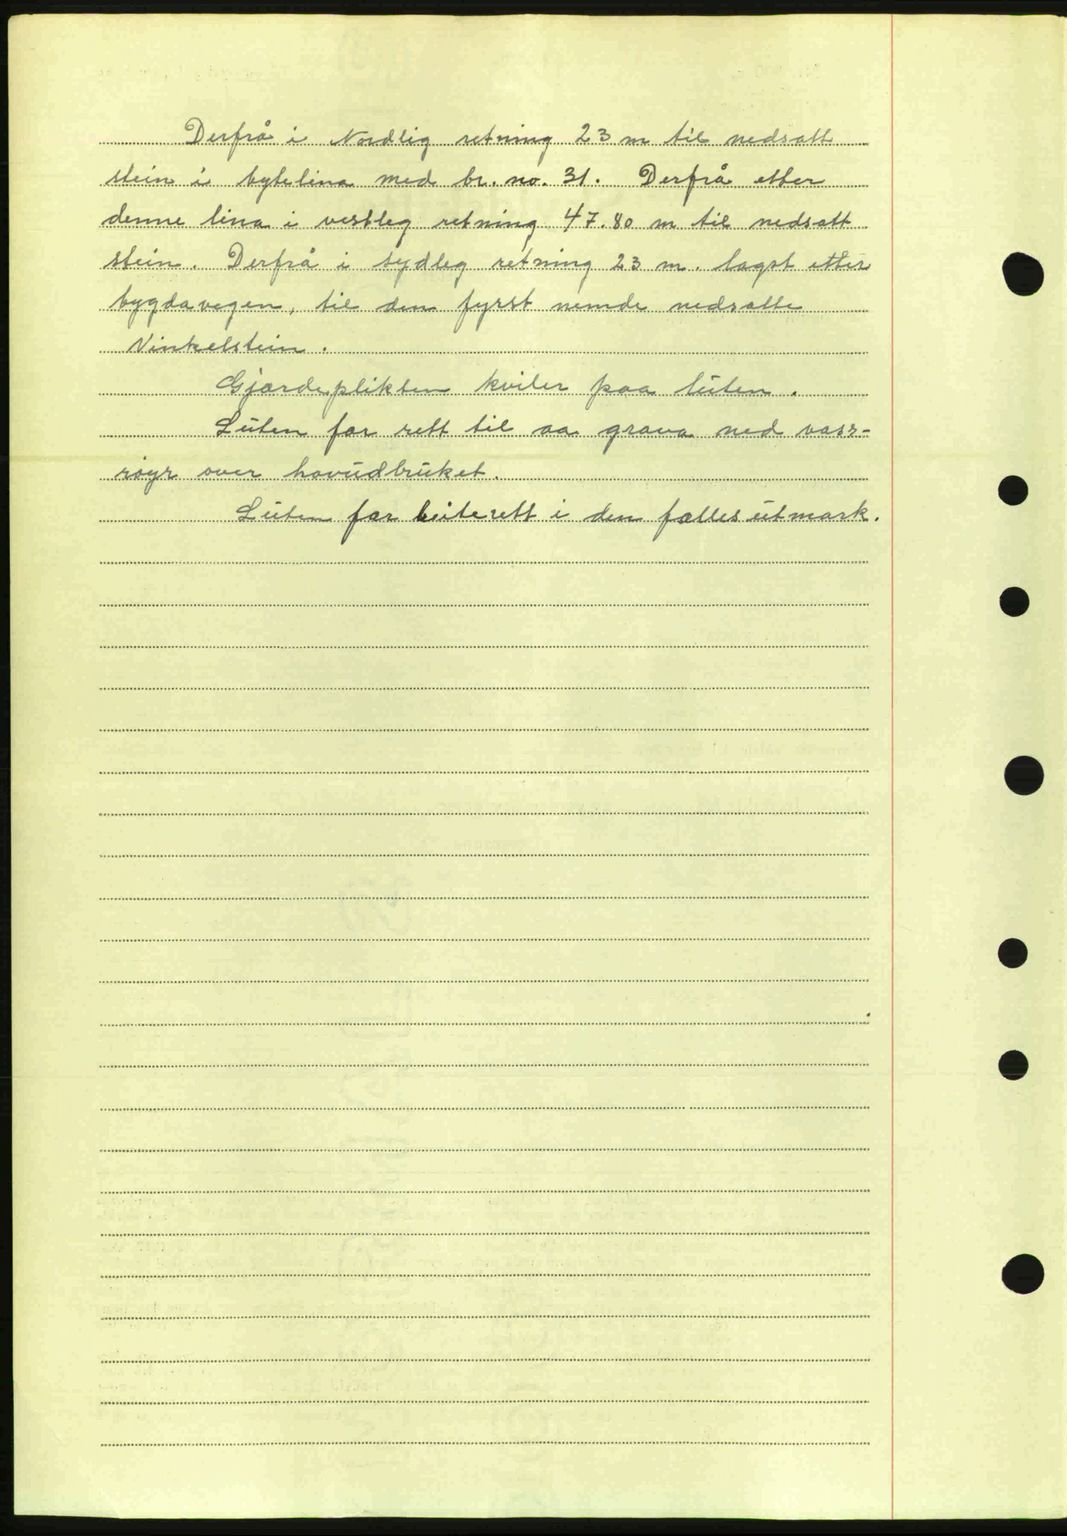 Derfrå i Nordlig retning 23 m til nedsatt
stein i bytelina med br. no. 31. Derfrå etter
denne lina i vestleg retning 47.80 m til nedsatt
stein. Derfrå i sydleg retning 23 m. lagst etter
bygdavegen, til den fyrst nemde nedsatte
Vinkelstein.
Gjærdeplikten kviler paa luten.
Luten far rett til aa grava ned vass-
røyr over hovudbruket.
Luten far beiterett i den fælles utmark.